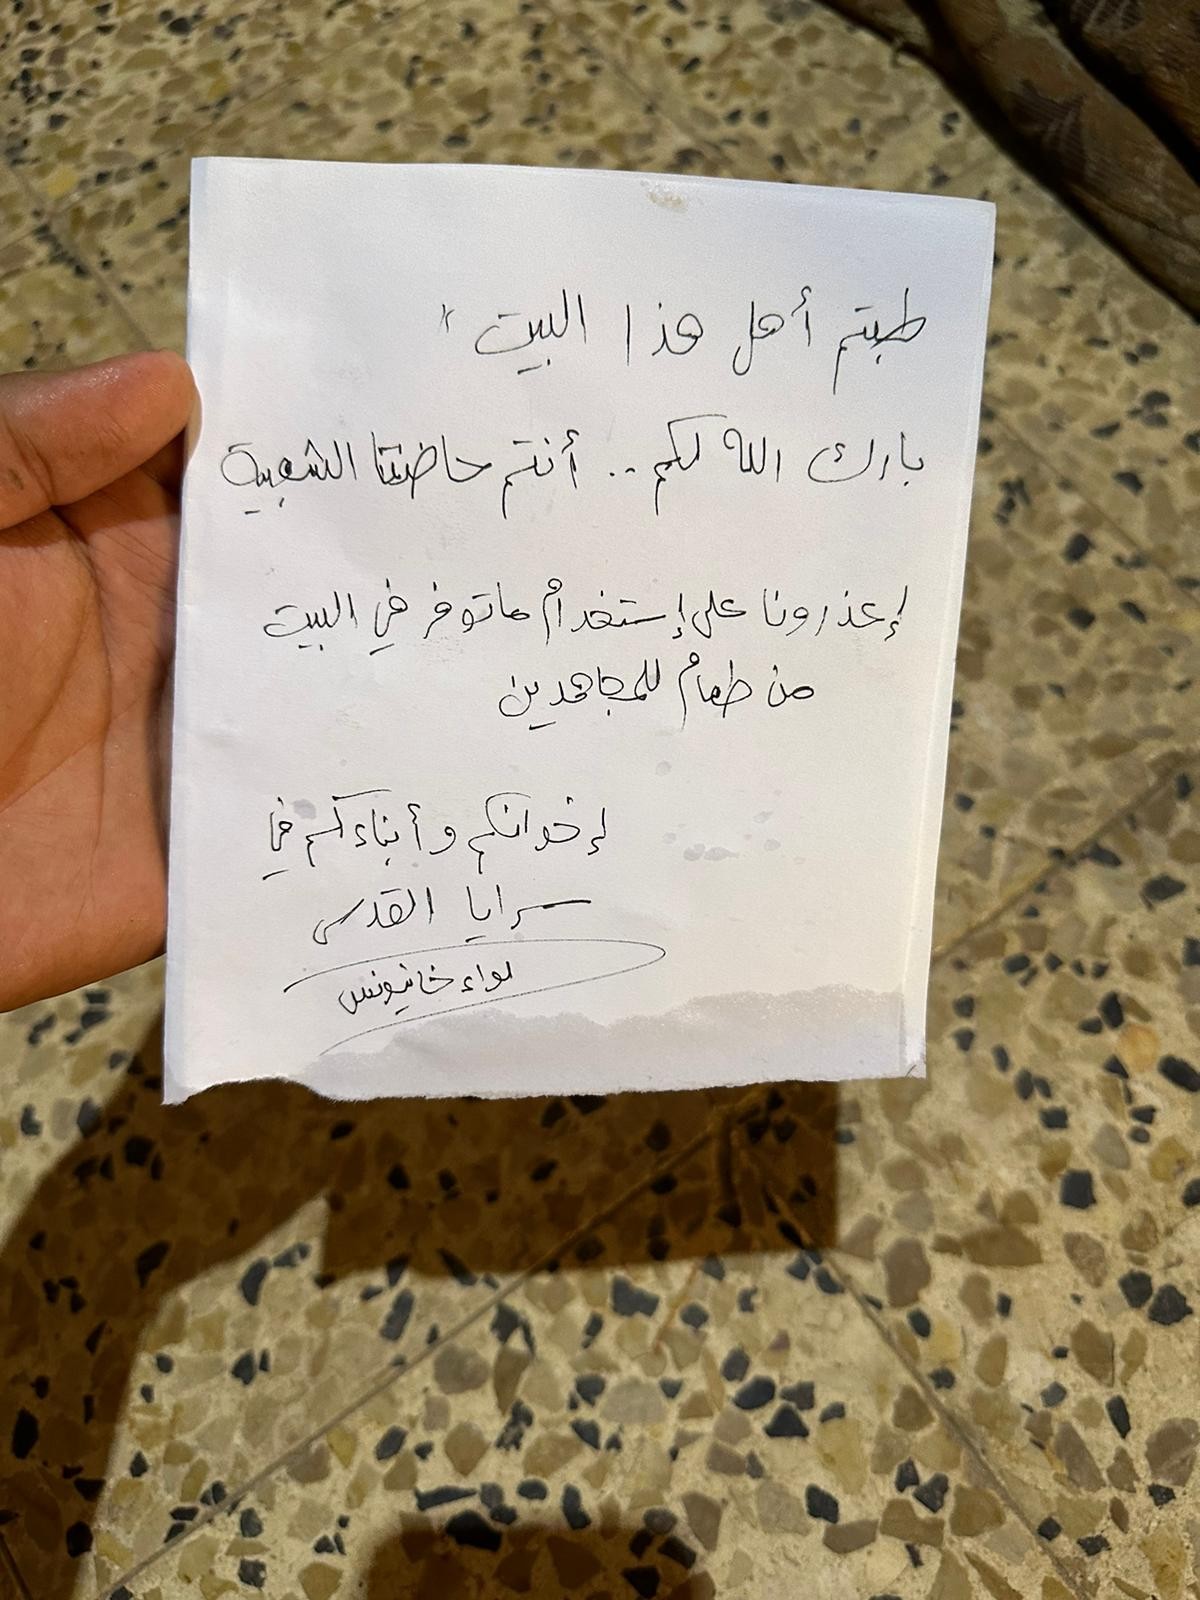 طبتم أهل هذا البيت "
بارك الله لكم.. أنتم حاضنتنا الشعبية
إعذرونا على إستخدام ماتوفر في البيت
من طعام للمجاهدين
إخوانكم وأبناءكم في
سرايا القدس
لواء خانيونس